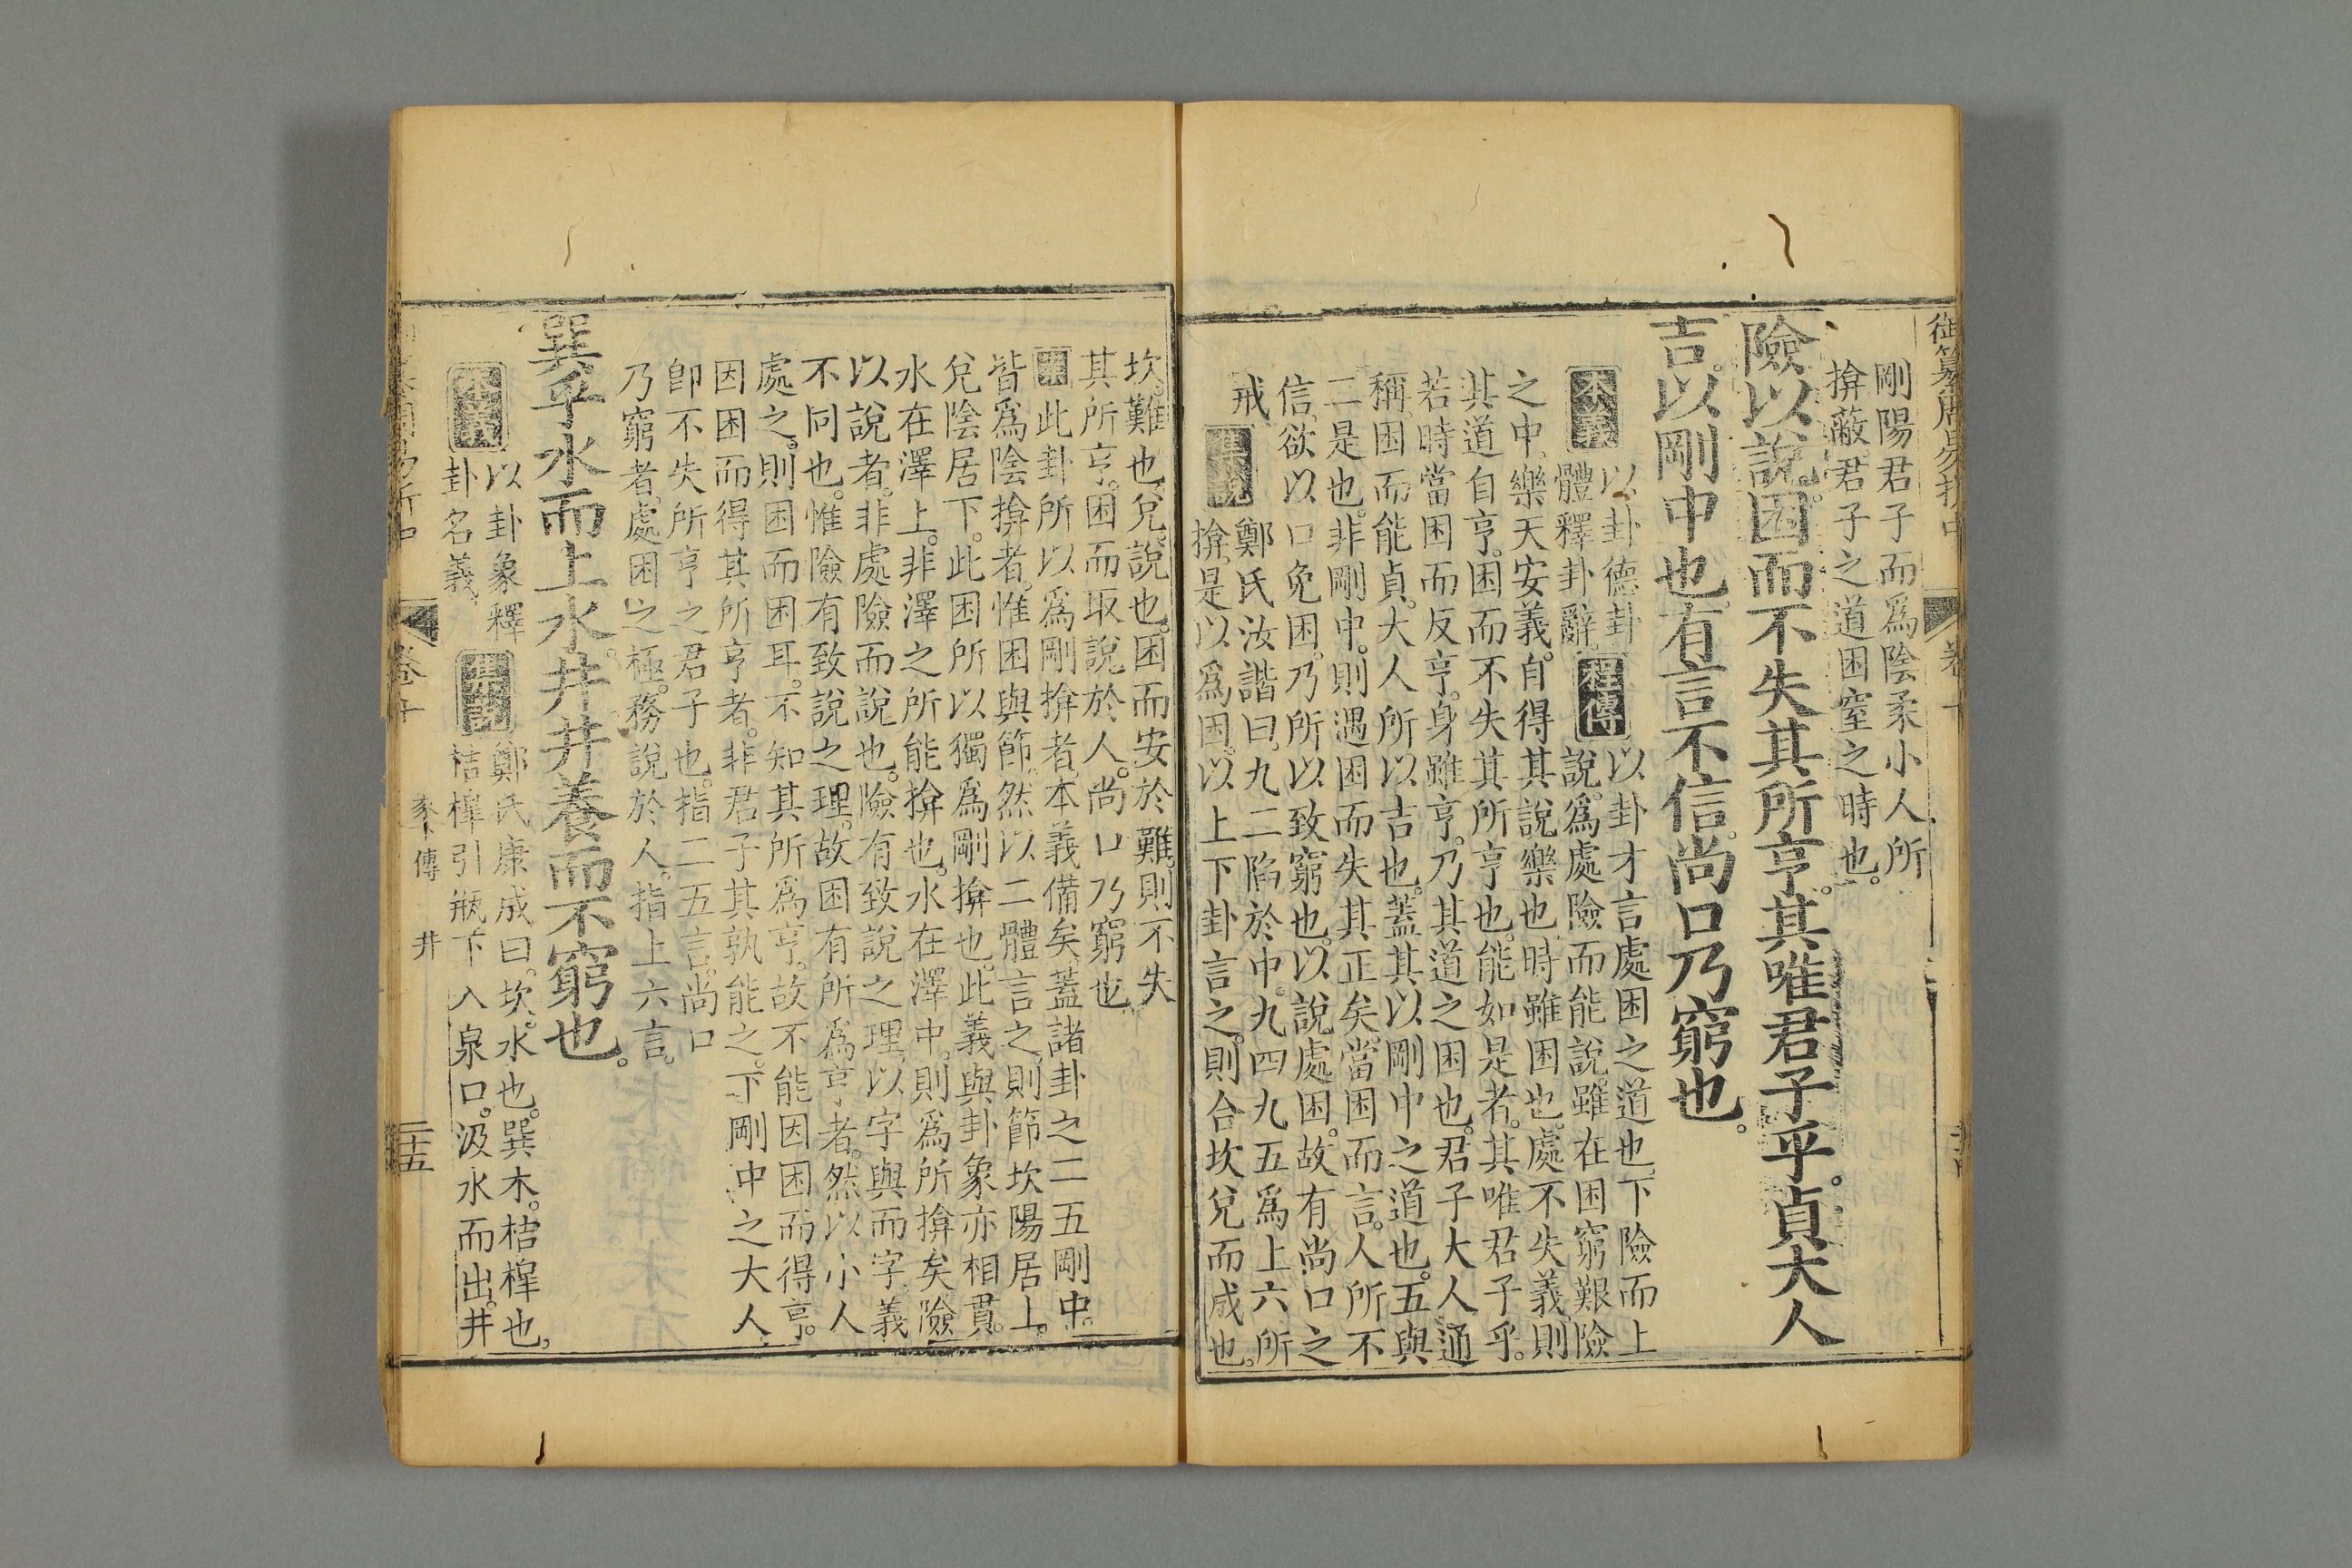 御纂周易折中
卷十
剛陽君子而爲陰柔小人所
揜蔽。君子之道困窒之時也。
險以說。困而不失其所亨。其唯君子乎。貞大人
吉。以剛中也。有言不信。尚口乃窮也。
本義
以卦德卦
體釋卦辭。
程傳
以卦才言處困之道也。下險而上
說。爲處險而能說。雖在困窮艱險
之中。樂天安義。自得其說樂也。時雖困也。處不失義。則
其道自亨。困而不失其所亨也。能如是者。其唯君子乎。
若時當困而反亨。身雖亨。乃其道之困也。君子大人通
稱。困而能貞。大人所以吉也。蓋其以剛中之道也。五與
二是也。非剛中。則遇困而失其正矣。當困而言。人所不
信。欲以口免困。乃所以致窮也。以說處困。故有尚口之
戒。
集說
鄭氏汝諧曰。九二陷於中。九四九五爲上六所
揜。是以爲困。以上下卦言之。則合坎兌而成也。
坎。難也。兌。說也。困而安於難。則不失
其所亨。困而取說於人。尚口乃窮也。
案
此卦所以爲剛揜者。本義備矣。蓋諸卦之二五剛中。
皆爲陰揜者。惟困與節。然以二體言之。則節坎陽居上。
兌陰居下。此困所以獨爲剛揜也。此義與卦象亦相貫。
水在澤上。非澤之所能揜也。水在澤中。則爲所揜矣。險
以說者。非處險而說也。險有致說之理。以字與而字義
不同也。惟險有致說之理。故困有所爲亨者。然以小人
處之。則困而困耳。不知其所爲亨。故不能因困而得亨。
因困而得其所亨者。非君子其孰能之。下剛中之大人。
卽不失所亨之君子也。指二五言。尚口
乃窮者。處困之極。務說於人。指上六言。
巽乎水而上水。井。井養而不窮也。
本義
以卦象釋
卦名義。
集說
鄭氏康成曰。坎。水也。巽木。桔槹也。
桔槹引瓶下入泉口。汲水而出。井
彖傳
井
二十五